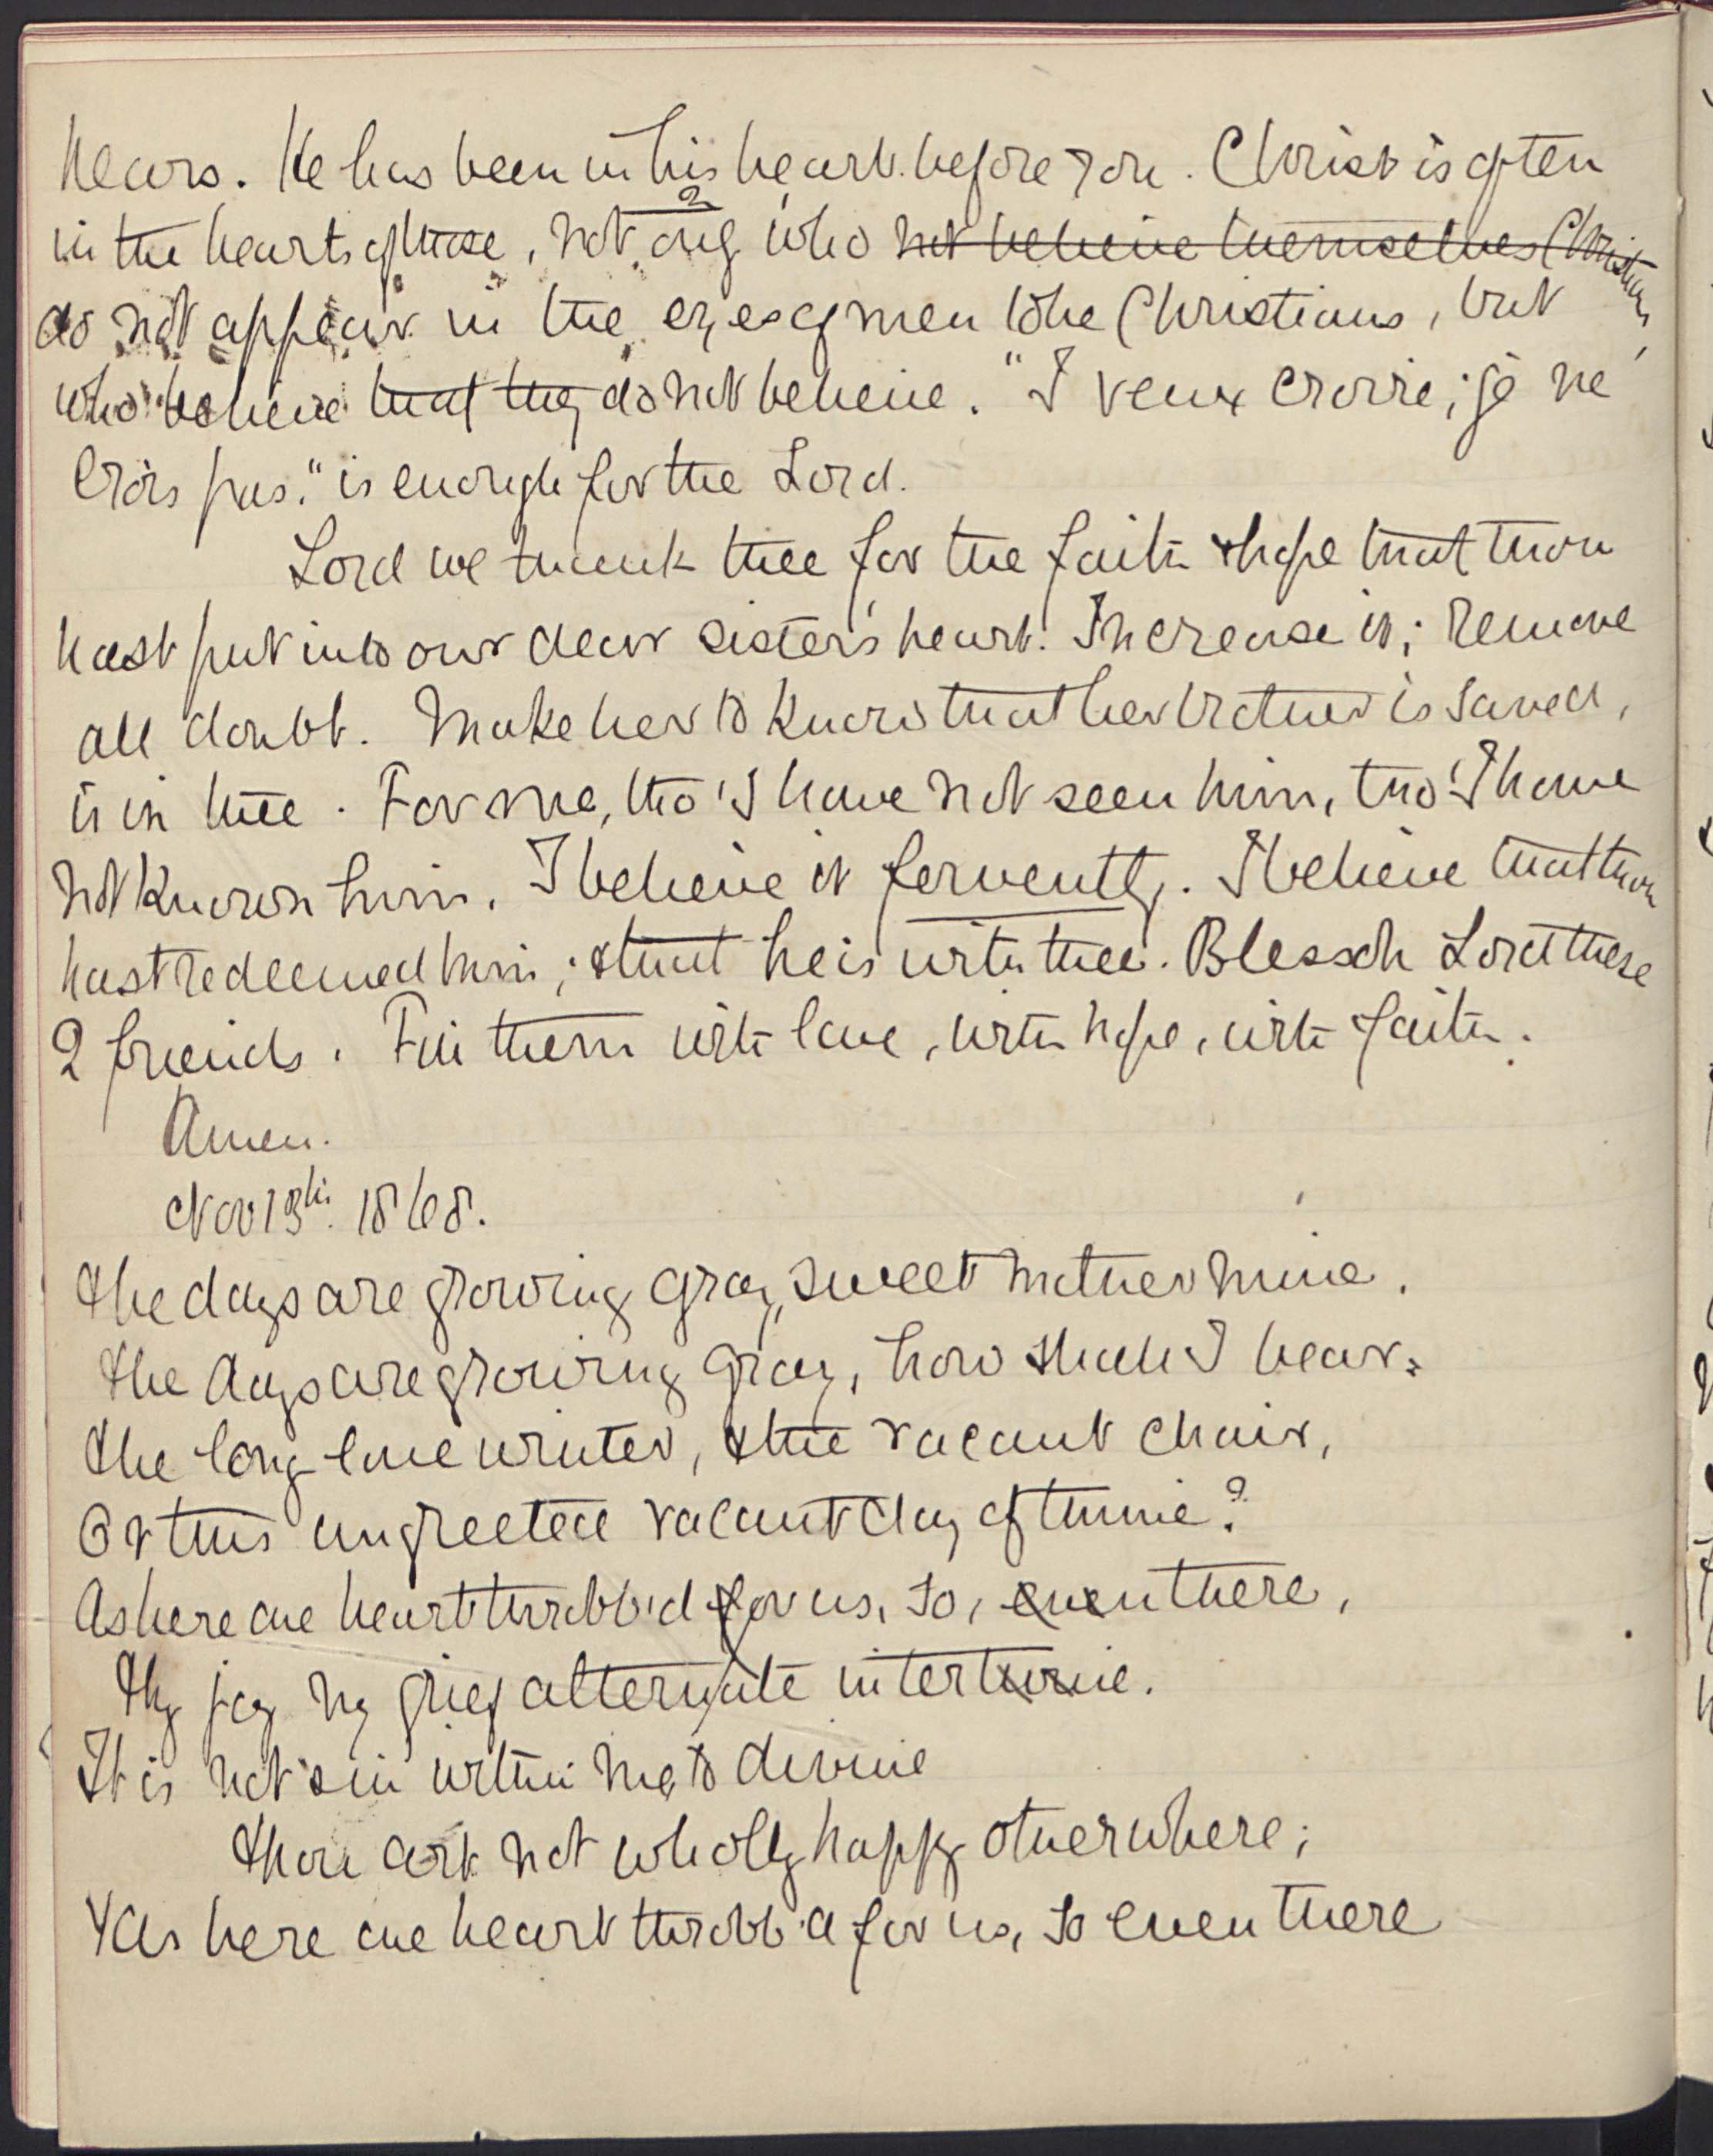 hears. He has been in his heart before you. Christ is often
in the hearts of those, not only who not believe themselves Christians
do not appear in the eyes of men to be Christians, but
who believe that they do not believe. "I veux croire; je ne
crois pas." is enough for the Lord.
Lord we thank thee for the faith & hope that thou
hast put into our dear sister's heart. Increase it; remove
all doubt. Make her to know that her brother is saved,
is in thee. For me, tho' I have not seen him, tho' I have
not known him, I believe it fervently. I believe that thou
hast redeemed him; & that he is with thee. Bless oh Lord these
2 friends. Fill them with love, with hope, with faith.
Amen.
Nov 13th. 1868.
The days are growing gray, sweet mother mine.
The days are growing gray, how shall I bear
The long lone winter, & the vacant chair,
Or this ungreeted vacant day of thine?
As here one heart throbb'd for us, so, even there,
Thy joy my grief alternate intertwine.
It is not sin within me to divine
Thou art not wholly happy otherwhere;
& As here one heart throbb'd for us, so even there